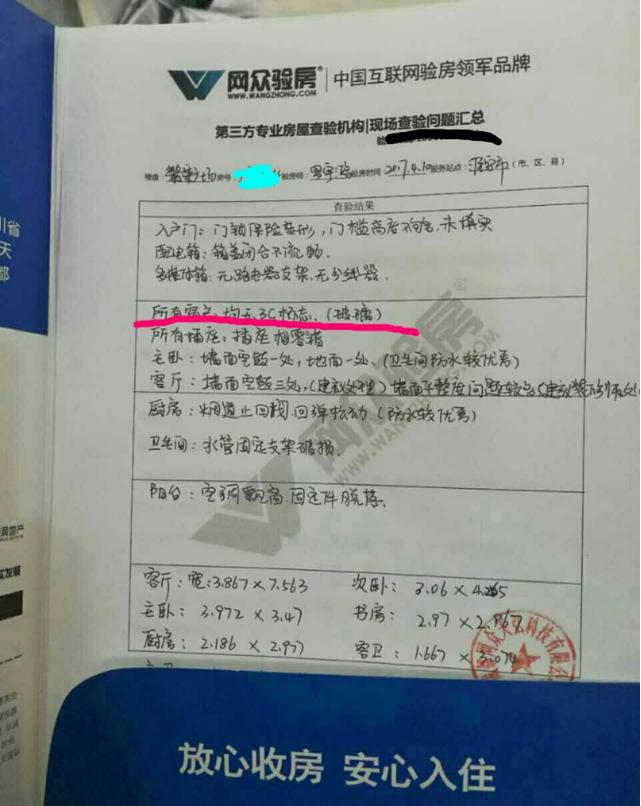 网众验房®
WWW.WANGZHONG.COM
中国互联网验房领军品牌
第三方专业房屋查验机构|现场查验问题汇总
验
楼盘: 房号: 验房师: 验房时间: 2017.4.10 服务站点: (市、区、县)
查验结果
入户门: 门锁保险变形, 门槛高度不够, 未填实
配电箱: 箱盖闭合不流畅
多媒体箱: 无路由器支架、无分线器.
所有窗户均无3C标志. (玻璃)
所有插座, 插座相零错
主卧: 墙面空鼓一处, 地面一处. (卫生间防水较优秀)
客厅: 墙面空鼓三处, (建议处理) 墙面平整度问题较多(建议整体修处
厨房: 烟道止回阀.回弹松动. (防水较优秀)
卫生间: 水管固定支架破损.
阳台: 空调飘窗.固定件脱落.
客厅: 宽: 3.867 × 7.563 次卧: 3.06 ×
主卧: 3.972 × 3.47 书房: 2.97 ×
厨房: 2.186 × 2.937 客卫: 1.667 × 3.074
网众验房
WWW.WANGZHONG.COM
川省
天
都
放心收房 安心入住